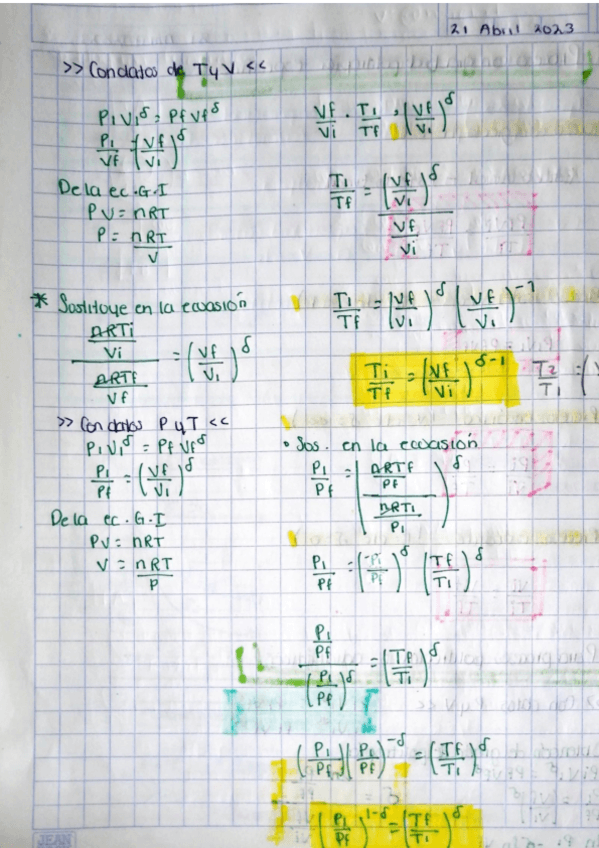 21 Abril 2023
>> Con datos de T y V <<
P1 V1^δ = Pf Vf^δ
P1/Vf = (Vf/V1)^δ
De la ec. G. I
PV = nRT
P = nRT/V
* Sustituye en la ecuasión
(nRTi/Vi)/(nRTf/Vf) = (Vf/V1)^δ
Vf/Vi · T1/Tf = (Vf/V1)^δ
T1/Tf = (Vf/V1)^δ/(Vf/Vi)
T1/Tf = (Vf/V1)^δ (Vf/V1)^-1
Ti/Tf = (Vf/Vi)^δ-1
T2/T1 = (
>> Con datos P y T <<
P1 V1^δ = Pf Vf^δ
P1/Pf = (Vf/V1)^δ
De la ec. G. I
PV = nRT
V = nRT/P
• Sos. en la ecuasión
P1/Pf = ((nRTf/Pf)/(nRT1/P1))^δ
P1/Pf = (Pi/Pf)^δ (Tf/T1)^δ
(P1/Pf)/(P1/Pf)^δ = (Tf/T1)^δ
(P1/Pf)(P1/Pf)^-δ = (Tf/T1)^δ
(P1/Pf)^1-δ = (Tf/T1)^δ
JEAN